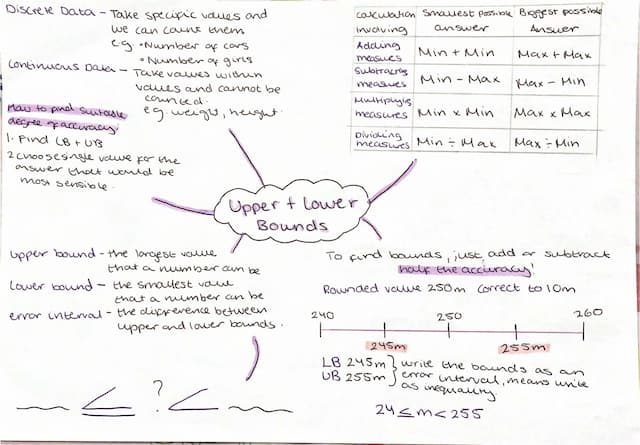 Discrete Data - Take specific values and
we can count them
eg • Number of cars
• Number of girls
Continuous Data - Take values within
values and cannot be
counted.
eg weight, height.
How to find suitable
degree of accuracy
1. Find LB + UB
2 choose single value for the
answer that would be
most sensible.
Calculation Involving
Smallest possible answer
Biggest possible Answer
Adding measures
Min + Min
Max + Max
Subtracting measures
Min - Max
Max - Min
Multiplying measures
Min x Min
Max x Max
Dividing measures
Min ÷ Max
Max ÷ Min
Upper + Lower
Bounds
upper bound - the largest value
that a number can be
lower bound - the smallest value
that a number can be
error interval - the difference between
upper and lower bounds.
≤ ? <
To find bounds, just add or subtract
half the accuracy!
Rounded value 250m correct to 10m
240 250 260
245m 255m
LB 245m } write the bounds as an
UB 255m } error interval, means write
as inequality.
24 ≤ m < 255